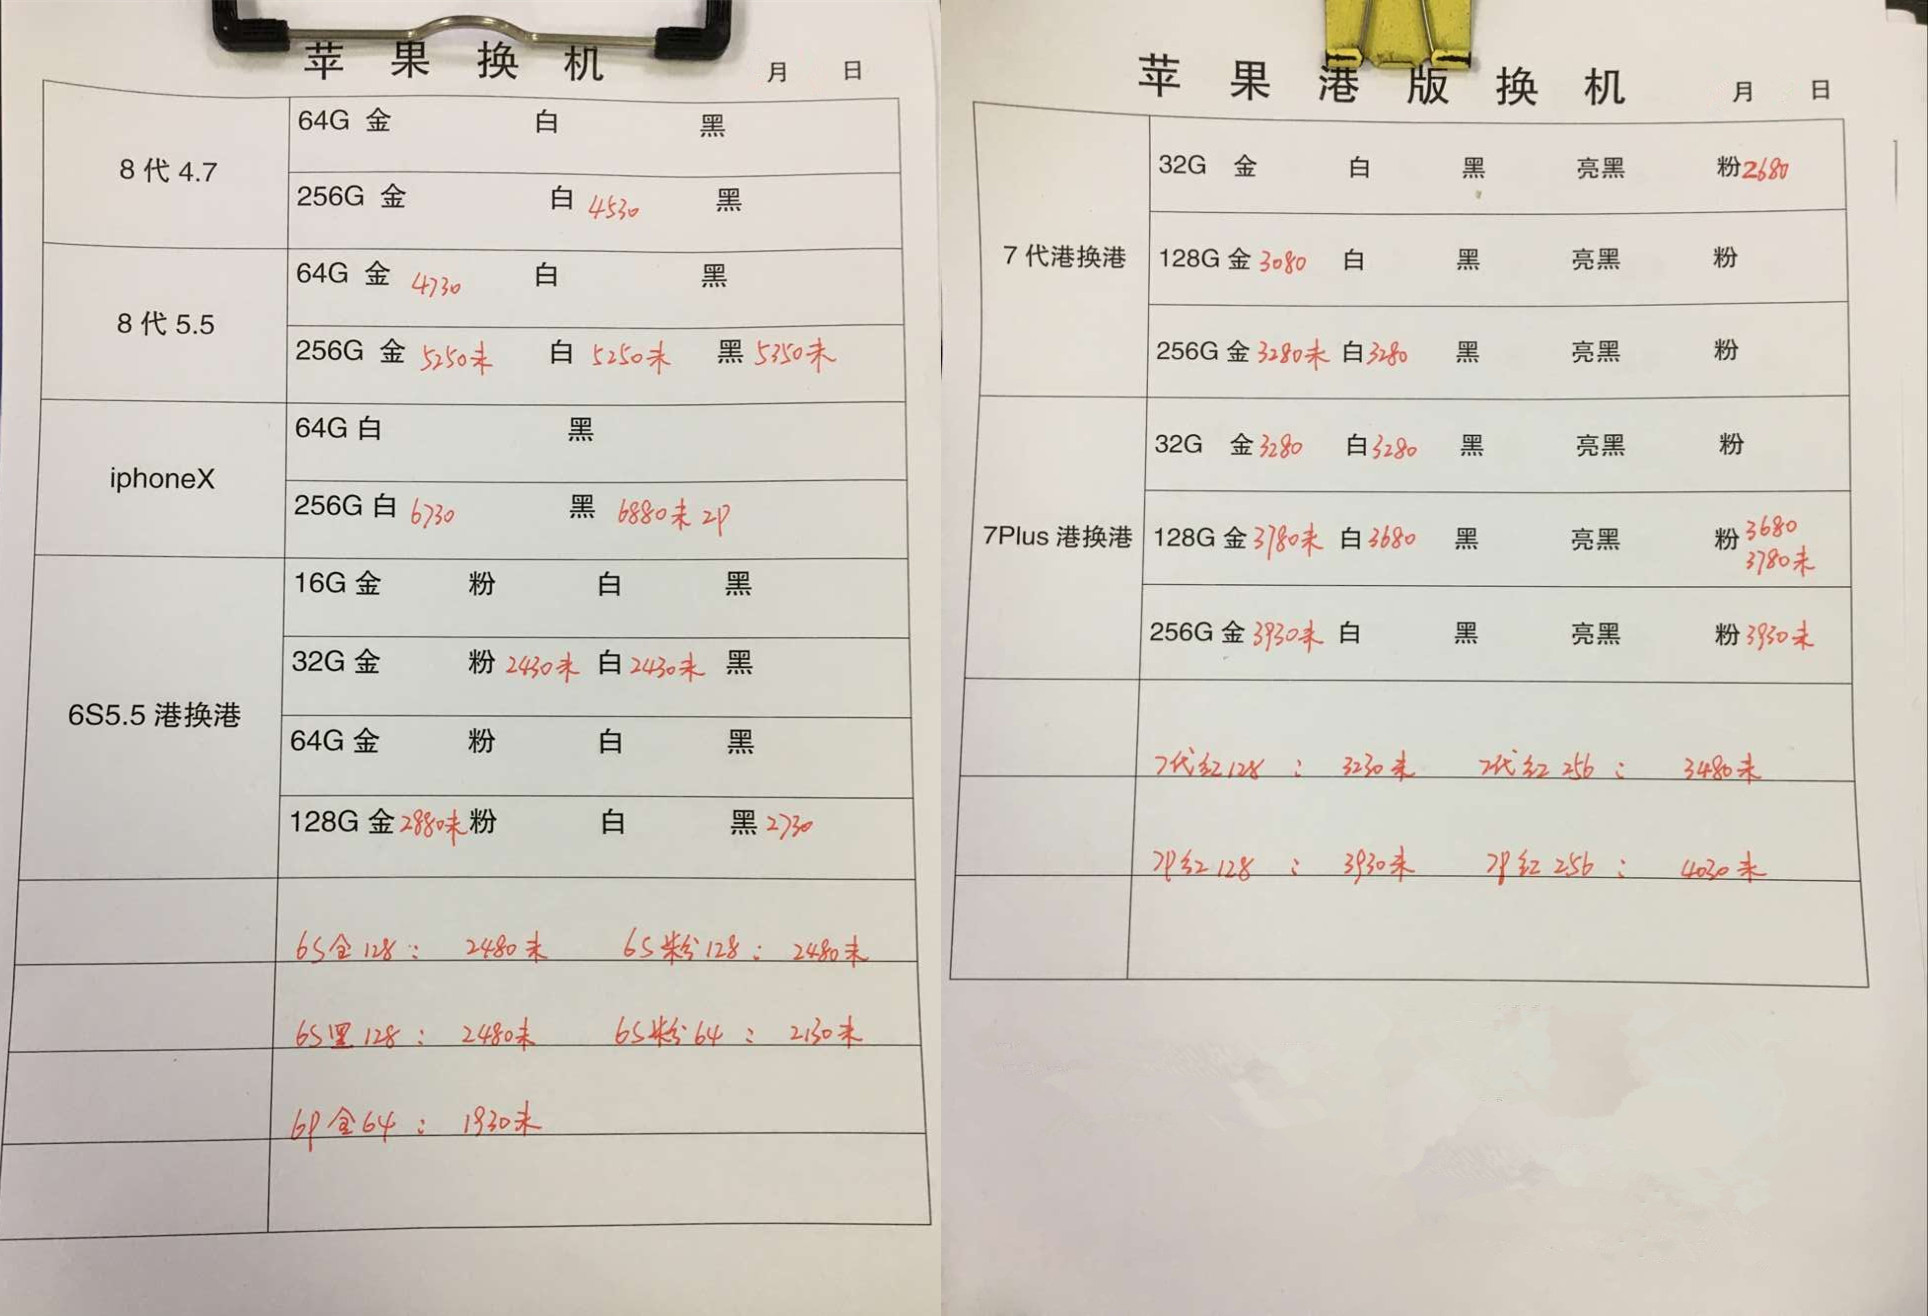 苹果换机 月 日
8代4.7
64G 金 白 黑
256G 金 白 4530 黑
8代5.5
64G 金 4730 白 黑
256G 金 5250未 白 5250未 黑 5350未
iphoneX
64G 白 黑
256G 白 6730 黑 6880未 2P
6S5.5港换港
16G 金 粉 白 黑
32G 金 粉 2430未 白 2430未 黑
64G 金 粉 白 黑
128G 金 2880未 粉 白 黑 2730
6S金128: 2480未 6S粉128: 2480未
6S黑128: 2480未 6S粉64: 2130未
6P金64: 1930未
苹果港版换机 月 日
7代港换港
32G 金 白 黑 亮黑 粉 2680
128G 金 3080 白 黑 亮黑 粉
256G 金 3280未 白 3280 黑 亮黑 粉
7Plus港换港
32G 金 3280 白 3280 黑 亮黑 粉
128G 金 3780未 白 3680 黑 亮黑 粉 3680
3780未
256G 金 3930未 白 黑 亮黑 粉 3930未
7代红128: 3230未 7代红256: 3480未
7P红128: 3930未 7P红256: 4030未